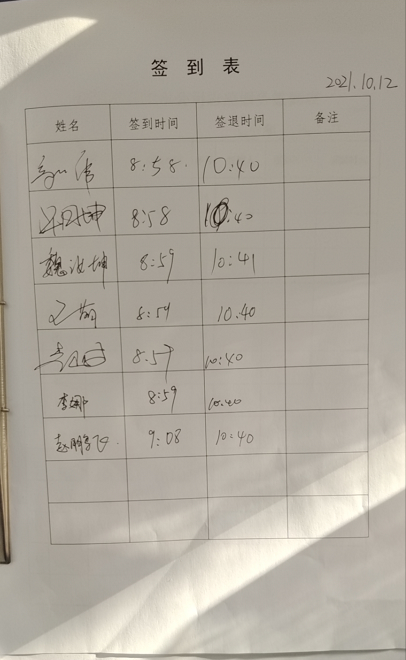 签到表
2021.10.12
姓名 签到时间 签退时间 备注
8:58 10:40
8:58 10:40
魏汝坤 8:59 10:41
8:59 10.40
8:57 10:40
李娜 8:59 10:40
赵鹏飞 9:08 10:40